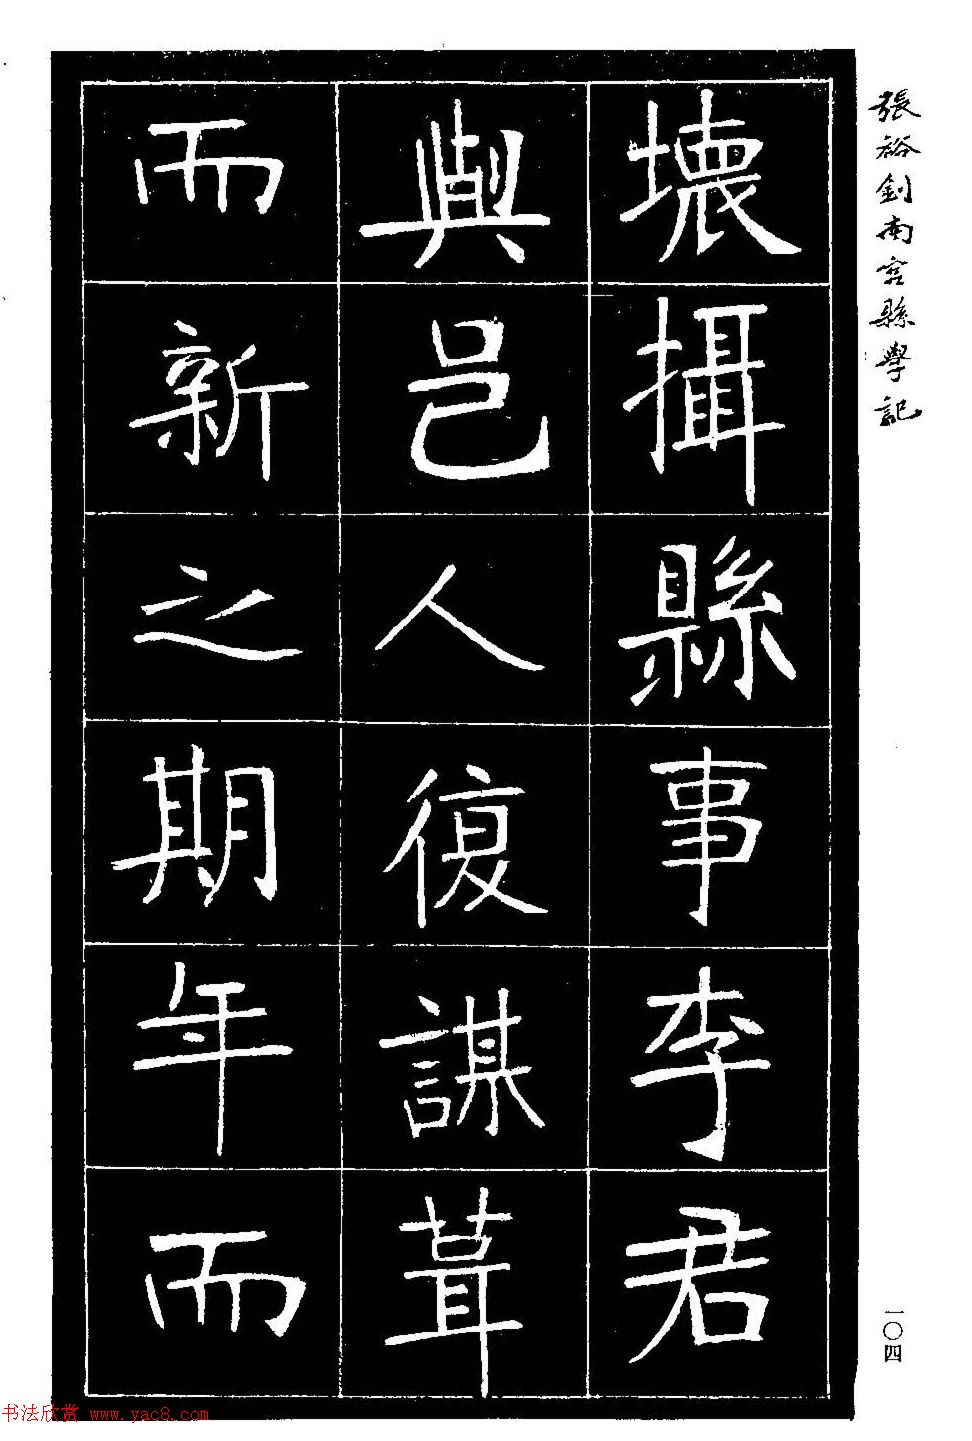 張裕釗南宮縣學記
壞攝縣事李君
與邑人復謀葺
而新之期年而
一〇四
书法欣赏 www.yac8.com